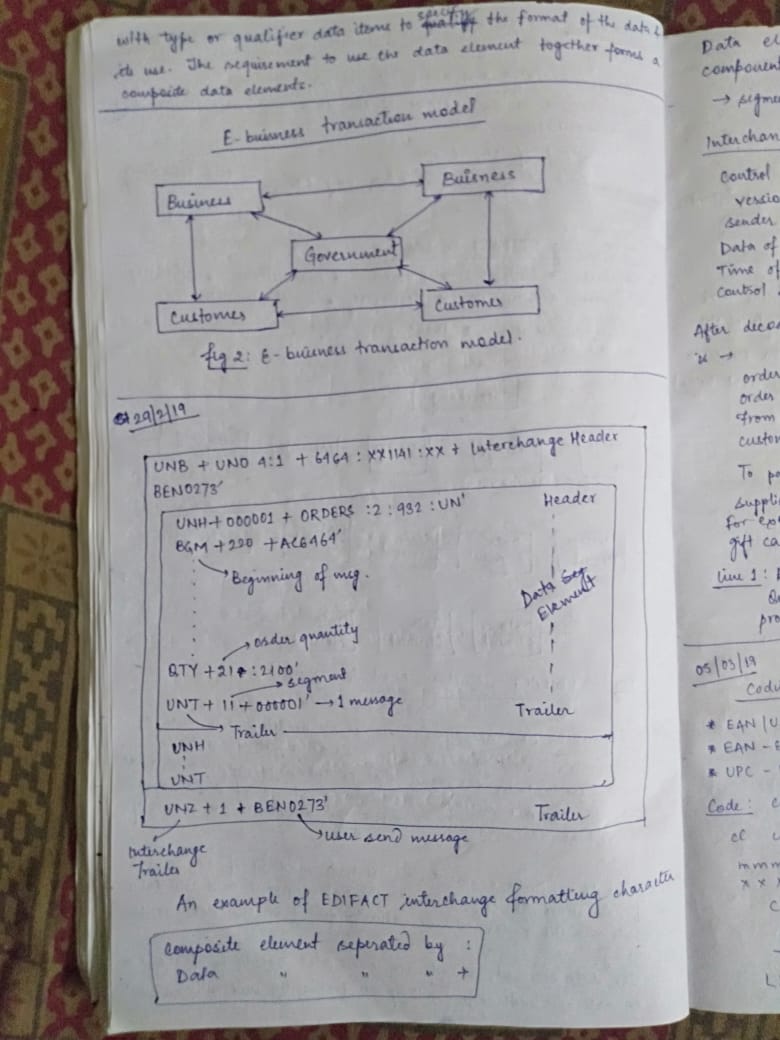 with type or qualifier data items to specify the format of the data &
its use. The requirement to use the data element together forms a
composite data elements.
E-buisness transaction model
Business
Buisness
Government
Customer
Customer
fig 2: E-buisness transaction model.
29/2/19
UNB + UNO 4:1 + 6464 : XX1141 : XX + Interchange Header
BEN0273'
UNH + 000001 + ORDERS :2 : 932 : UN' Header
BGM + 220 + AC6464'
Beginning of msg.
Data Seg
Element
order quantity
QTY + 21 : 2100'
segment
UNT + 11 + 000001' → 1 message Trailer
Trailer
UNH
UNT
UNZ + 1 + BEN0273' Trailer
user send message
Interchange
Trailer
An example of EDIFACT interchange formatting character
Composite element seperated by :
Data " " " +
Data el
component
→ segme
Interchan
Control
versio
sender
Data of
Time of
Control
After deco
is →
order
order
From
custom
To
suppli
for
gift ca
Line 1 :
pro
05/03/19
* EAN /U
* EAN -
* UPC -
Code :